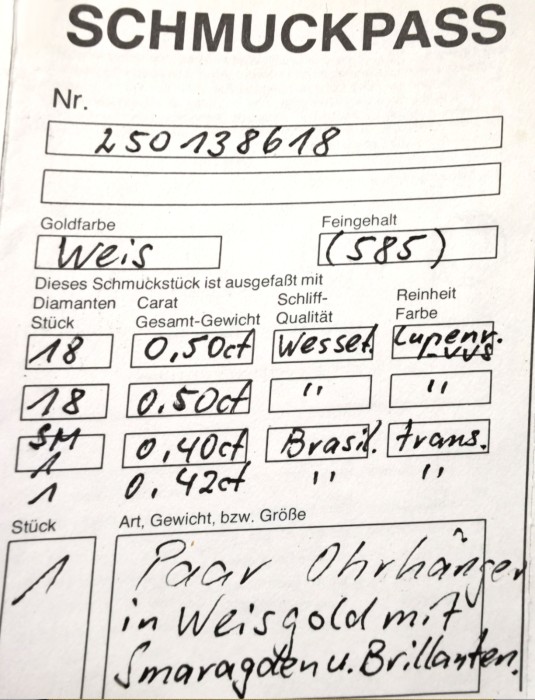 SCHMUCKPASS
Nr.
250138618
Goldfarbe Feingehalt
Weis (585)
Dieses Schmuckstück ist ausgefaßt mit
Diamanten Carat Schliff- Reinheit
Stück Gesamt-Gewicht Qualität Farbe
18 0,50ct Wessel. Lupenr.
-VVS
18 0.50ct " "
SM
1 0,40ct Brasil. trans.
1 0,42ct " "
Stück Art, Gewicht, bzw. Größe
1 Paar Ohrhänger
in Weisgold mit
Smaragden u. Brillanten.